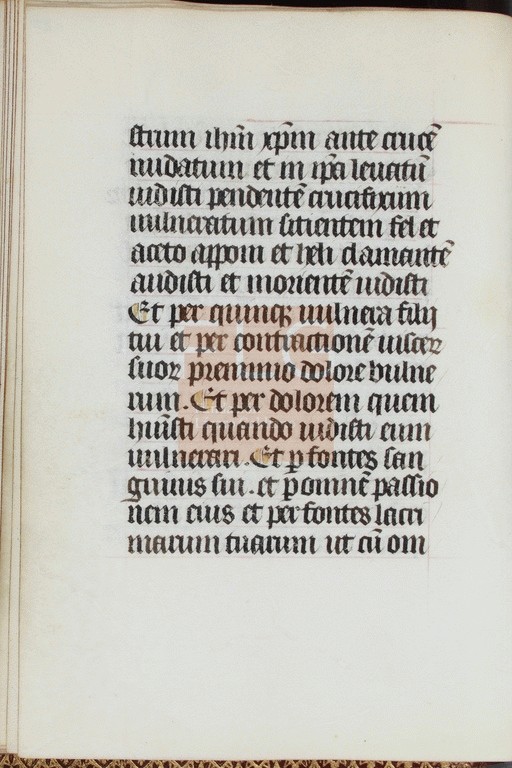 strum ihm̄ xp̄m ante crucē
nudatum et in ip̄a leuatū
uidisti pendentē crucifixum
uulneratum sitientem fel et
aceto apponi et heli clamantē
audisti et morientē uidisti
Et per quinqꝫ uulnera filij
tui et per contractionē uiscerꝝ
suoꝝ pre nimio dolore vulne
rum. Et per dolorem quem
huīsti quando uidisti eum
uulnerari. Et ꝑ fontes san
guinis sui. et ꝑ omnē passio
nem eius et per fontes lacri
marum tuarum ut cū om